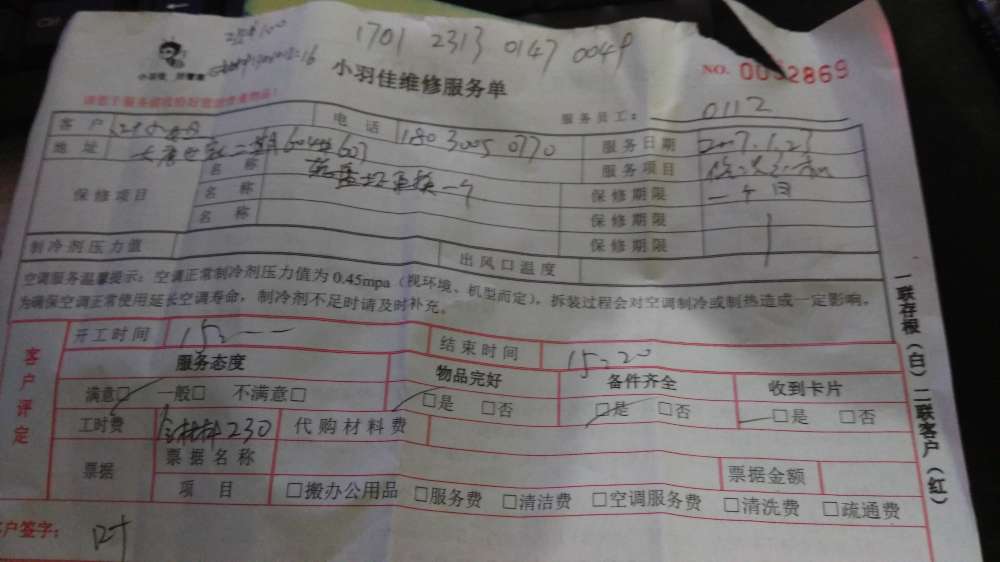 1701 2313 0147 0049
小羽佳维修服务单
NO.
服务员工: 0112
客户 电话 180 3005 0770 服务日期 2017.1.23
地址 服务项目
保修项目 名称 保修期限 一个月
名称 保修期限
名称 保修期限
制冷剂压力值 出风口温度
空调服务温馨提示：空调正常制冷剂压力值为0.45mpa（视环境、机型而定），拆装过程会对空调制冷或制热造成一定影响。
为确保空调正常使用延长空调寿命，制冷剂不足时请及时补充。
客户评定
开工时间 15: 结束时间 15:20
服务态度 物品完好 备件齐全 收到卡片
满意□ 一般□ 不满意□ □是 □否 □是 □否 □是 □否
工时费 含材料230 代购材料费
票据 票据名称 票据金额
项目 □搬办公用品 □服务费 □清洁费 □空调服务费 □清洗费 □疏通费
客户签字: 叶
一联存根（白）二联客户（红）